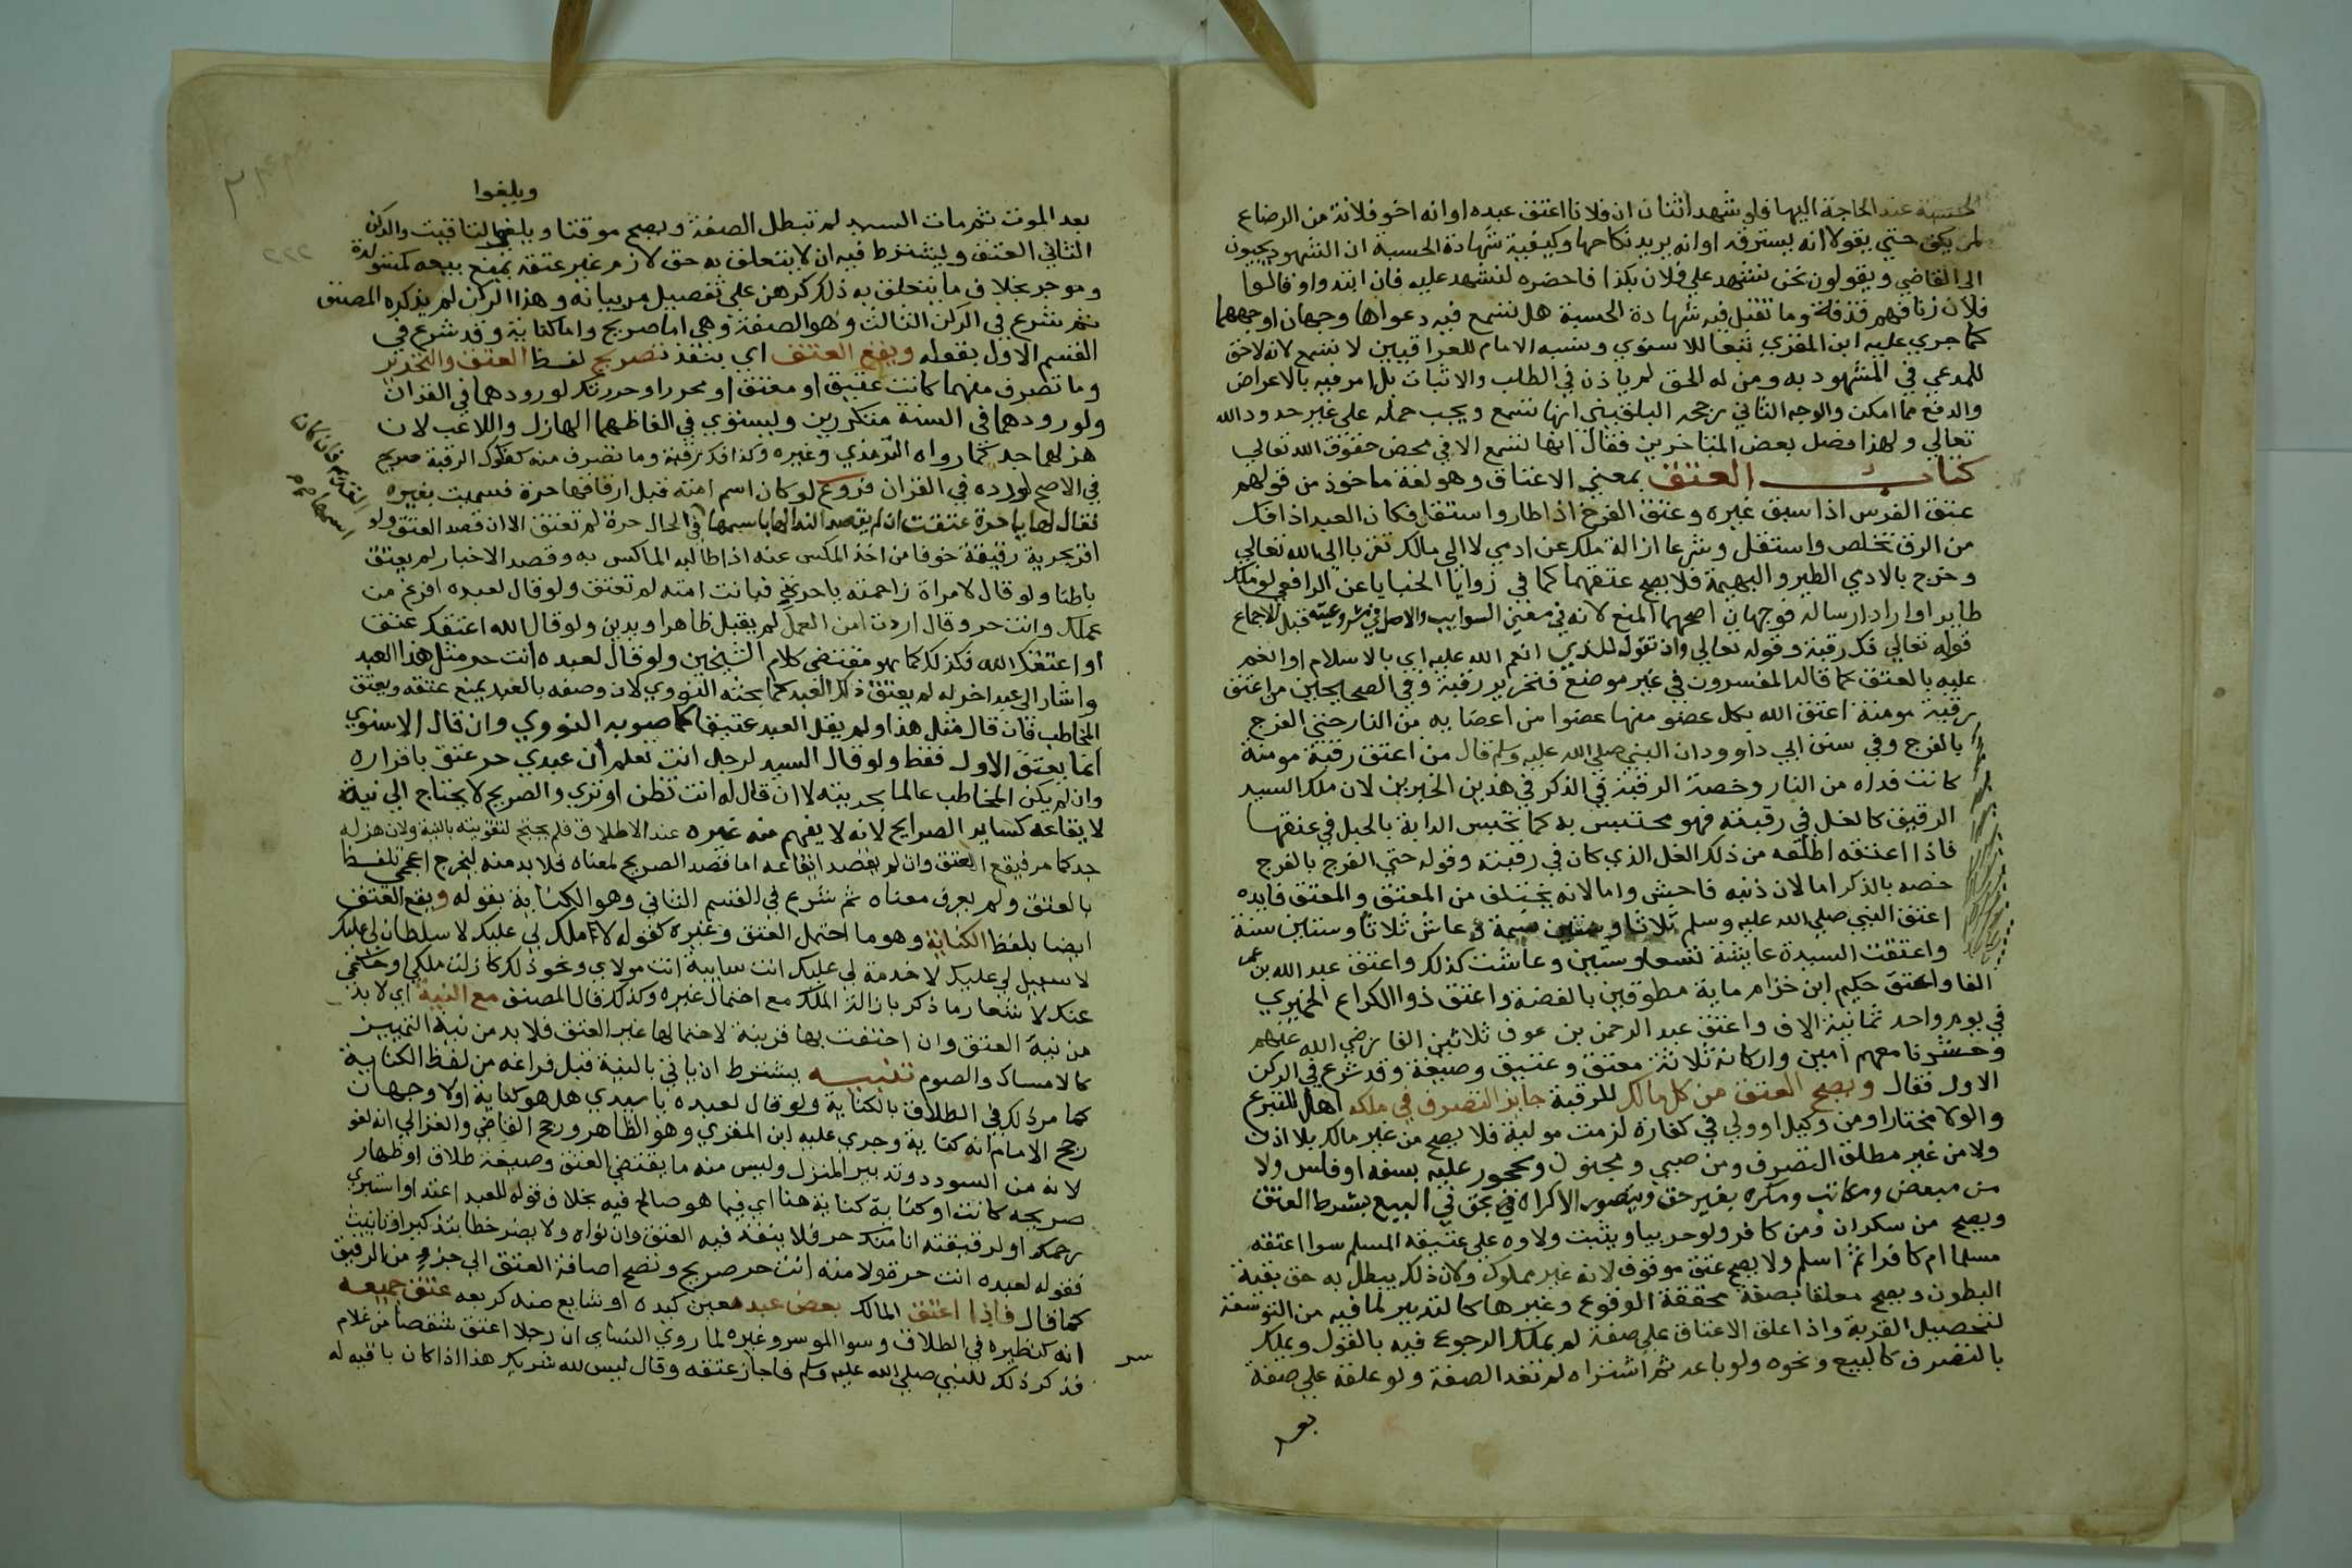 الحسبة عند الحاجة اليها فلو شهد اثنان ان فلانا اعتق عبده او انه اخو فلانة من الرضاع
لم يكف حتي يقولا انه يسترقه او انه يريد نكاحها وكيفية شهادة الحسبة ان الشهود يجيبون
الي القاضي ويقولون نحن نشهد علي فلان بكذا فاحضره لنشهد عليه فان ابتدوا وقالوا
فلان زنا فهم قذفة وما تقبل فيه شهادة الحسبة هل تسمع فيه دعواها وجهان اوجههما
كما جري عليه ابن المقري تبعا للاسنوي ونسبه الامام للعراقيين لا تسمع لانه لا حق
للمدعي في المشهود به ومن له الحق لم ياذن في الطلب والاثبات بل امر فيه بالاعراض
والدفع مما امكن والوجه الثاني رجحه البلقيني انها تسمع ويجب حمله علي غير حدود الله
تعالي ولهذا فصل بعض المتاخرين فقال انها تسمع الا في محض حقوق الله تعالي
كتاب العتق بمعني الاعتاق وهو لغة ماخوذ من قولهم
عتق الفرس اذا سبق غيره وعتق الفرخ اذا طار واستقل فكان العبد اذا فك
من الرق تخلص واستقل وشرعا ازالة ملك عن ادمي لا الي مالك تقربا الي الله تعالي
وخرج بالادمي الطير والبهيمة فلا يصح عتقهما كما في زوايا الخبايا عن الرافعي لو ملك
طايرا واراد ارساله فوجهان اصحهما المنع لانه في معني السوايب والاصل في مشروعيته قبل الاجماع
قوله تعالي فك رقبة وقوله تعالي وان تقول للذي انعم الله عليه اي بالاسلام وانعم
عليه بالعتق كما قاله المفسرون في غير موضع فتحرير رقبة وفي الصحيحين من اعتق
رقبة مومنة اعتق الله بكل عضو منها عضوا من اعضايه من النار حتي الفرج
بالفرج وفي سنن ابي داوود ان النبي صلي الله عليه وسلم قال من اعتق رقبة مومنة
كانت فداه من النار وخصة الرقبة في الذكر في هذين الخبرين لان ملك السيد
الرقيق كالغل في رقبته فهو محتبس به كما تحبس الدابة بالحبل في عنقها
فاذا اعتقه اطلقه من ذلك الغل الذي كان في رقبته وقوله حتي الفرج بالفرج
خصه بالذكر اما لان ذنبه فاحش واما لانه يختلف من المعتق والمعتق فايده
اعتق النبي صلي الله عليه وسلم ثلاثا وستين نسمة وعاش ثلاثا وستين سنة
واعتقت السيدة عايشة تسعا وستين وعاشت كذلك واعتق عبد الله بن عمر
الفا واعتق حكيم ابن خزام ماية مطوقين بالفضة واعتق ذوا الكراع الحميري
في يوم واحد ثمانية الاف واعتق عبد الرحمن بن عوف ثلاثين الفا رضي الله عنهم
وحشرنا معهم امين واركانه ثلاثة معتق وعتيق وصيغة وقد شرع في الركن
الاول فقال ويصح العتق من كل مالك للرقبة جايز التصرف في ملكه اهل للتبرع
والولا مختارا ومن وكيل او ولي في كفارة لزمت موليه فلا يصح من غير مالك بلا اذن
ولا من غير مطلق التصرف ومن صبي ومجنون ومحجور عليه بسفه او فلس ولا
من مبعض ومكاتب ومكره بغير حق ويتصور الاكراه بحق في البيع بشرط العتق
ويصح من سكران ومن كافر ولو حربيا ويثبت ولاوه علي عتيقه المسلم سوا اعتقه
مسلما ام كافرا ثم اسلم ولا يصح عتق موقوف لانه غير مملوك ولان ذلك يبطل به حق بقية
البطون ويصح معلقا بصفة محققة الوقوع وغيرها كالتدبير لما فيه من التوسعة
لتحصيل القربة واذا علق الاعتاق علي صفة لم يملك الرجوع فيه بالقول ويملك
بالتصرف كالبيع ونحوه ولو باعه ثم اشتراه لم تعد الصفة ولو علقه علي صفة
بعد
ويلغوا
بعد الموت ثم مات السيد لم تبطل الصفة ويصح موقتا ويلغوا التاقيت والركن
الثاني العتيق ويشترط فيه ان لا يتعلق به حق لازم غير عتقه يمنع بيعه كمستولدة
وموجر بخلاف ما يتعلق به ذلك كرهن علي تفصيل مر بيانه وهذا الركن لم يذكره المصنف
ثم شرع في الركن الثالث وهو الصيغة وهي اما صريح واما كناية وقد شرع في
القسم الاول بقوله ويقع العتق اي ينفذ بصريح لفظ العتق والتحرير
وما تصرف منهما كانت عتيق او معتق او محرر او حررتك لورودهما في القران
ولورودهما في السنة متكررين ويستوي في الفاظهما الهازل واللاعب لان
هزلهما جد كما رواه الترمذي وغيره وكذا فك رقبة وما تصرف منه كمفكوك الرقبة صريح
في الاصح لوروده في القران فروع لو كان اسم امته قبل ارقاقها حرة فسميت بغيره
فقال لها يا حرة عتقت ان لم يقصد الندا لها باسمها في الحال حرة لم تعتق الا ان قصد العتق ولو
القديم فان كان
اسمها
اقر بحرية رقيقه خوفا من اخذ المكس عنه اذا طالبه الماكس به وقصد الاخبار لم يعتق
باطنا ولو قال لامراة زاحمته يا حرة فبانت امته لم تعتق ولو قال لعبده افرغ من
عملك وانت حر وقال اردت من العمل لم يقبل ظاهرا ويدين ولو قال الله اعتقك عتق
او اعتقك الله فكذلك كما هو مقتضي كلام الشيخين ولو قال لعبده انت حر مثل هذا العبد
واشار الي عبد اخر له لم يعتق ذلك العبد كما بحثه النووي لان وصفه بالعبد يمنع عتقه ويعتق
المخاطب فان قال مثل هذا ولم يقل العبد عتيقا كما صوبه النووي وان قال الاسنوي
انما يعتق الاول فقط ولو قال السيد لرجل انت تعلم ان عبدي حر عتق باقراره
وان لم يكن المخاطب عالما بحريته لا ان قال له انت تظن او تري والصريح لا يحتاج الي نية
لايقاعه كساير الصرايح لانه لا يفهم منه غيره عند الاطلاق فلم يحتج لتقويته بالنية ولان هزله
جد كما مر فيقع العتق وان لم يقصد ايقاعه اما قصد الصريح لمعناه فلا بد منه ليخرج اعجمي تلفظ
بالعتق ولم يعرف معناه ثم شرع في القسم الثاني وهو الكناية بقوله ويقع العتق
ايضا بلفظ الكناية وهو ما احتمل العتق وغيره كقوله لا ملك لي عليك لا سلطان لي عليك
لا سبيل لي عليك لا خدمة لي عليك انت سايبة انت مولاي ونحو ذلك كازلت ملكي او حكمي
عنك لاشعار ما ذكر بازالة الملك مع احتمال غيره وكذلك قال المصنف مع النية اي لا بد
من نية العتق وان احتفت بها قرينة لاحتمالها غير العتق فلا بد من نية التمييز
كالامساك والصوم تنبيه يشترط ان ياتي بالنية قبل فراغه من لفظ الكناية
كما مر ذلك في الطلاق بالكناية ولو قال لعبده يا سيدي هل هو كناية او لا وجهان
رجح الامام انه كناية وجري عليه ابن المقري وهو الظاهر ورجح القاضي والغزالي انه لغو
لانه من السودد وتدبير المنزل وليس منه ما يقتضي العتق وصيغة طلاق او ظهار
صريحه كانت او كناية كناية هنا اي فيما هو صالح فيه بخلاف قوله للعبد اعتد او استبري
رحمك او لرقيقته انا منك حر فلا ينفذ فيه العتق وان نواه ولا يضر خطا بتذكير او تانيث
فقوله لعبده انت حرة ولامته انت حر صريح وتصح اضافة العتق الي جزو من الرقيق
كما قال فاذا اعتق المالك بعض عبد معين كيده او شايع منه كربعه عتق جميعه
انه كنظيره في الطلاق وسوا الموسر وغيره لما روي النساي ان رجلا اعتق شقصا من غلام
فذكر ذلك للنبي صلي الله عليه وسلم فاجاز عتقه وقال ليس لله شريك هذا اذا كان باقيه له